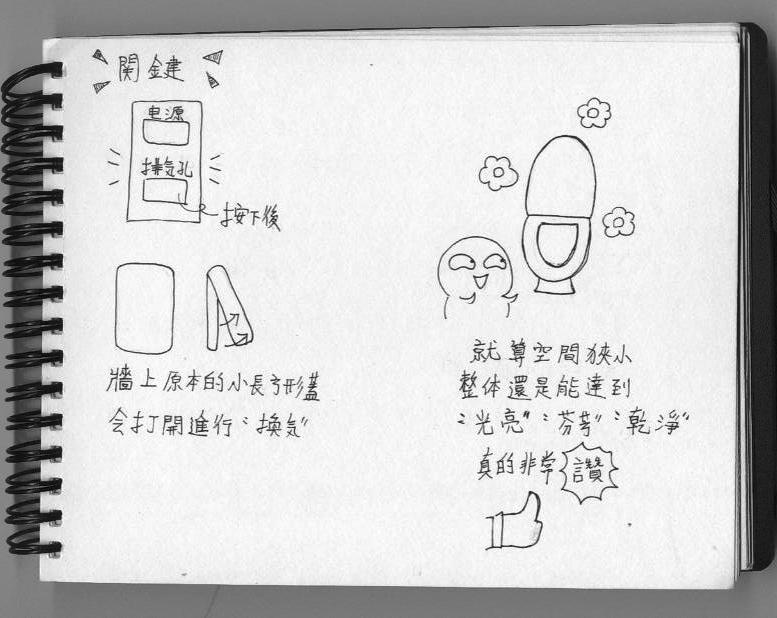 関鍵
电源
排気孔
按下後
牆上原本的小長方形蓋
会打開進行"換気"
就算空間狹小
整体還是能達到
"光亮" "芬芳" "乾淨"
真的非常 讚